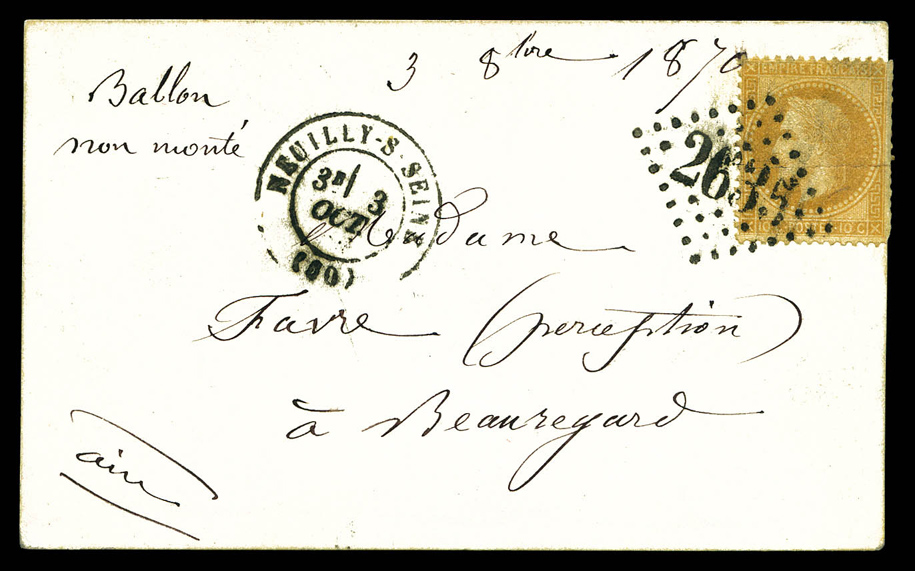 3 8bre 1870
Ballon
non monté
EMPIRE FRANÇAIS
2655
10 C POSTES 10 C
NEUILLY-S-SEINE
3E/ 3
OCT
(60)
Madame
Favre (perception)
à Beauregard
ain